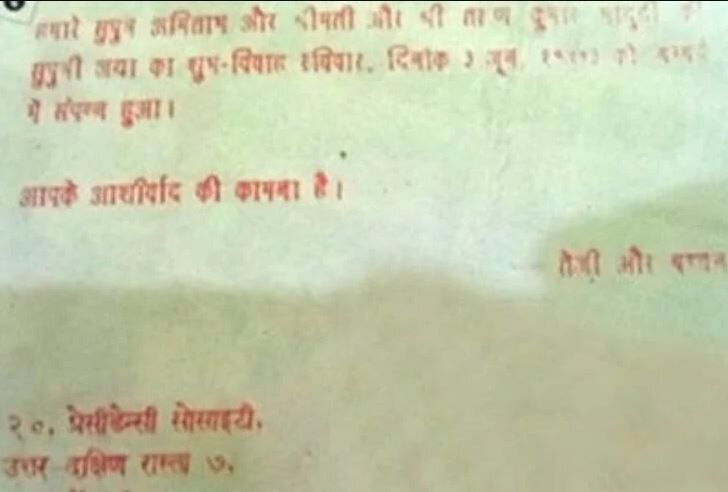 हमारे सुपुत्र अमिताभ और श्रीमती और श्री तरुण कुमार भादुड़ी की
सुपुत्री जया का शुभ-विवाह रविवार, दिनांक ३ जून, १९७३ को बम्बई
में संपन्न हुआ।
आपके आशीर्वाद की कामना है।
तेजी और बच्चन
२०, प्रेसीडेन्सी सोसाइटी,
उत्तर दक्षिण रास्ता ७,